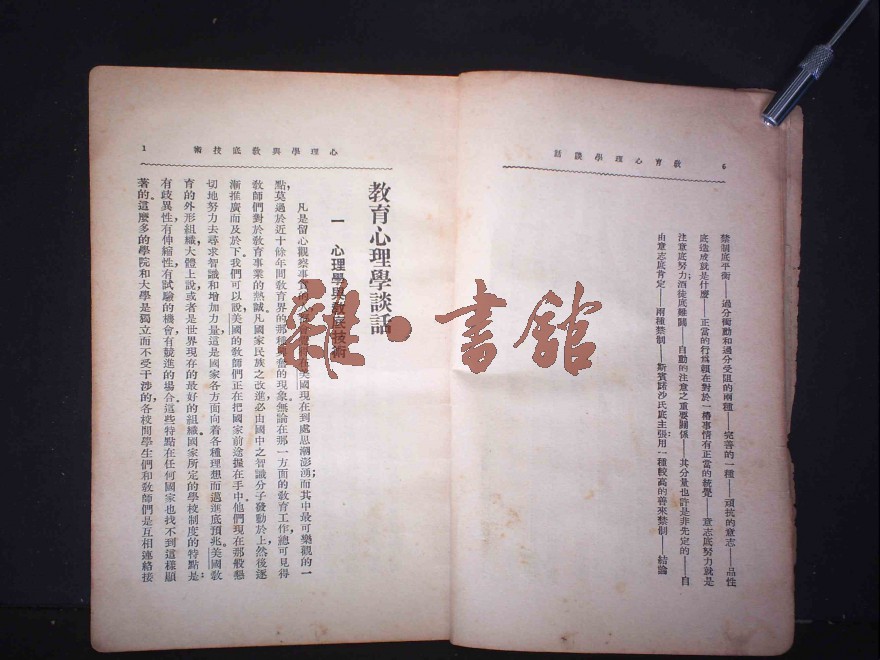 教育心理學談話
6
禁制底平衡——過分衝動和過分受阻的兩種——完善的一種——頑抗的意志——品性
底造成就是什麼——正當的行爲賴在對於一樁事情有正當的統覺——意志底努力就是
注意底努力；酒徒底難關——自動的注意之重要關係——其分量也許是非先定的——自
由意志底肯定——兩種禁制——斯賓諾沙氏底主張用一種較高的善來禁制——結論
心理學與教底技術
1
教育心理學談話
一 心理學與教底技術
凡是留心觀察事實的
美國現在到處思潮澎湧；而其中最可樂觀的一
點，莫過於近十餘年間教育界的那種
奮的現象。無論在那一方面的教育工作，總可見得
教師們對於教育事業的熱誠。凡國家民族之改進必由國中之智識分子發動於上，然後逐
漸推廣而及於下。我們可以說，美國的教師們正在把國家前途握在手中。他們現在那般懇
切地努力去尋求智識和增加力量，這是國家各方面向着各種理想而邁進底預兆。美國教
育的外形組織，大體上說，或者是世界現存的最好的組織。國家所定的學校制度的特點是：
有歧異性，有伸縮性，有試驗的機會，有競進的場合。這些特點在任何國家也找不到這樣顯
著的。這麼多的學院和大學是獨立而不受干涉的，各校間學生們和教師們是互相連絡接
雜·書館